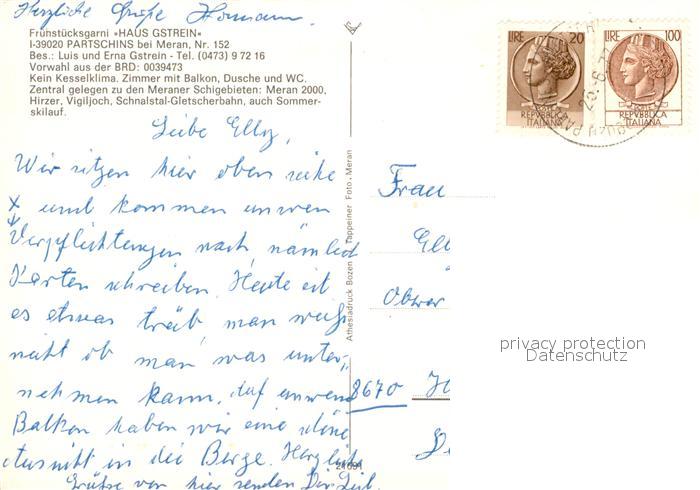 Herzliche Grüße Hermann.
Frühstücksgarni »HAUS GSTREIN«
I-39020 PARTSCHINS bei Meran, Nr. 152
Bes.: Luis und Erna Gstrein - Tel. (0473) 9 72 16
Vorwahl aus der BRD: 0039473
Kein Kesselklima. Zimmer mit Balkon, Dusche und WC.
Zentral gelegen zu den Meraner Schigebieten: Meran 2000,
Hirzer, Vigiljoch, Schnalstal-Gletscherbahn, auch Sommer-
skilauf.
Liebe Elly,
Wir sitzen hier oben
x und kommen unseren
Verpflichtungen nach, nämlich
Karten schreiben. Heute ist
es etwas trüb, man weiß
nicht ob man was unter-
nehmen kann, auf unserem
Balkon haben wir eine schöne
Aussicht in die Berge. Herzliche
Grüße von hier senden Dir
Athesiadruck Bozen Tappeiner Foto - Meran
21091
LIRE 20
REPVBBLICA
ITALIANA
LIRE 100
REPVBBLICA
ITALIANA
Frau
Ell
Ober
8670
privacy protection
Datenschutz